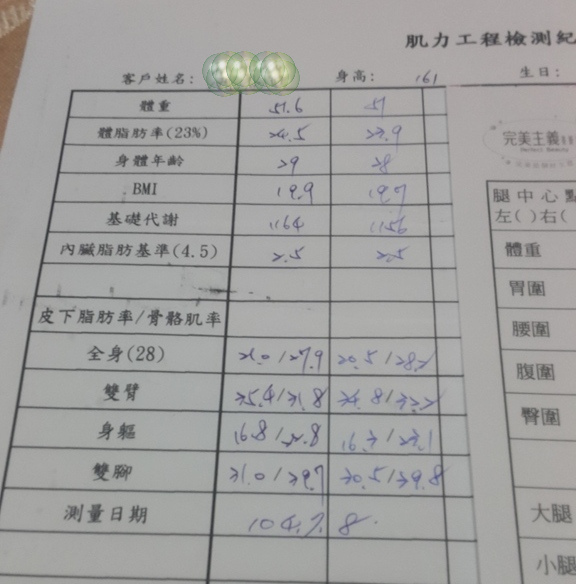 肌力工程檢測紀
客戶姓名: 身高: 161 生日:
體重 51.6 51
體脂肪率(23%) 24.5 23.9
身體年齡 29 28
BMI 19.9 19.7
基礎代謝 1164 1156
內臟脂肪基準(4.5) 2.5 2.5
皮下脂肪率/骨骼肌率
全身(28) 21.0/27.9 20.5/28.2
雙臂 35.4/31.8 34.8/32.2
身軀 16.8/22.8 16.3/23.1
雙腳 31.0/39.7 30.5/39.8
測量日期 104.7.8.
完美主義
Perfect Beauty
腿中心點
左( )右(
體重
胃圍
腰圍
腹圍
臀圍
大腿
小腿